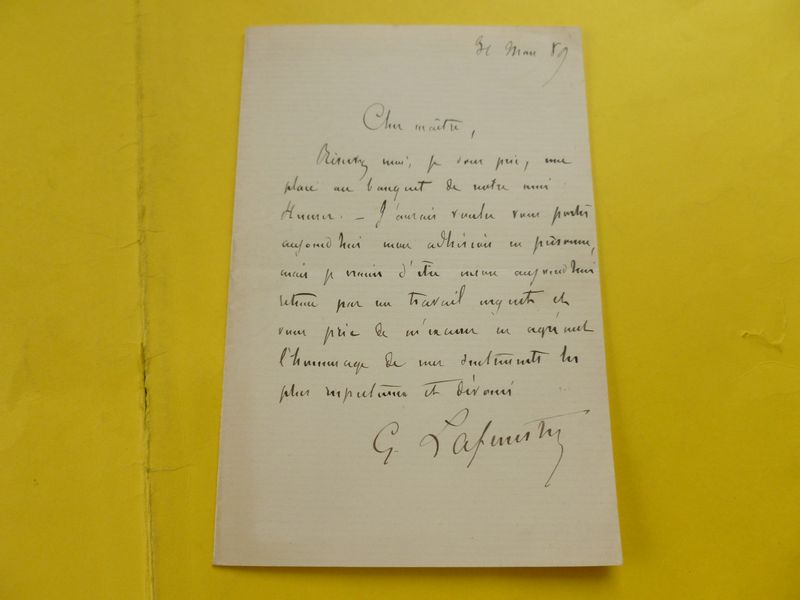 Mars 89
Cher maître,
Réservez moi, je vous prie, une
place au banquet de notre ami
J'aurais voulu vous porter
aujourd'hui mon adhésion en personne,
mais je crains d'être encore aujourd'hui
retenu par un travail urgent et
vous prie de m'excuser en agréant
l'hommage de mes sentiments les
plus respectueux et dévoués
G. Lafenestre